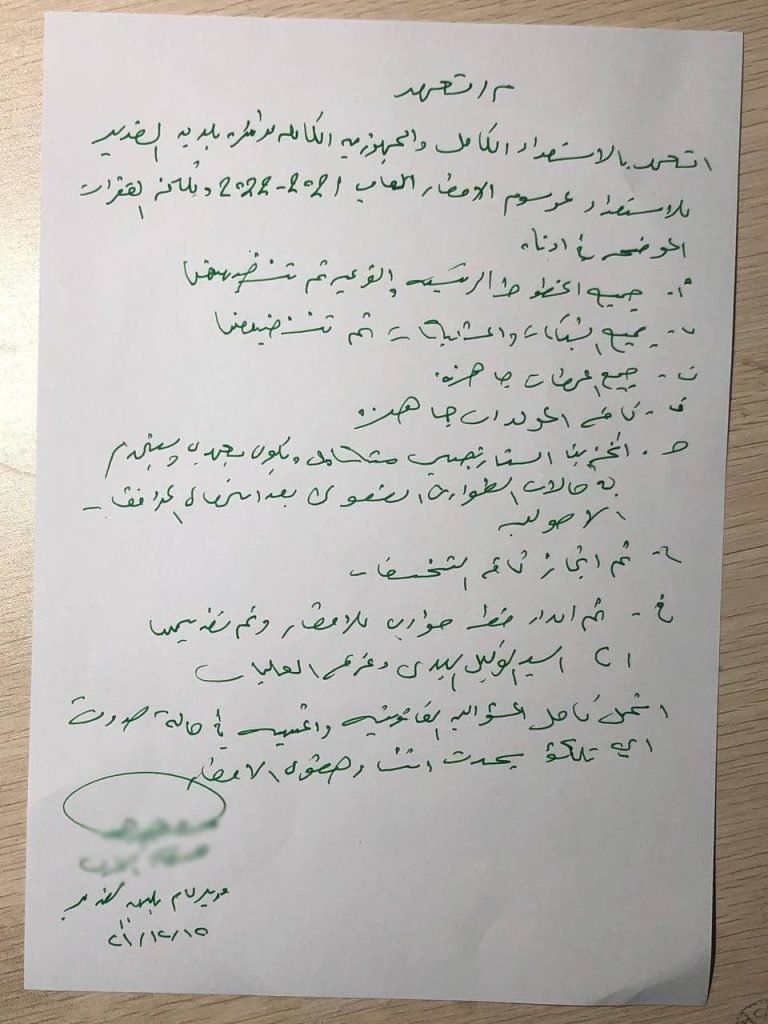 م / تعهد
اتعهد بالاستعداد الكامل والجهوزية الكاملة لدائرة بلدية الغدير
للاستعداد لموسم الامطار القادم 2021-2022 وللفقرات
الموضحة في ادناه
أ- جميع الخطوط الرئيسية والفرعية تم تنظيفها
ب- جميع الشبكات والمشبكات تم تنظيفها
ت- جميع المحطات جاهزة.
ث- كافة المولدات جاهزة
ج- الخزين الستراتيجي متكامل ويكون وسيستخدم
في حالات الطوارئ القصوى بعد استحصال الموافقات
الاصولية
ح- تم انجاز كافة التخسفات
خ- تم اعداد خطط طوارئ للامطار وتم تقديمها
الى السيد الوكيل البلدي وغرفة العمليات
اتحمل كامل المسؤولية القانونية والفنية في حالة حدوث
اي تلكؤ يحدث اثناء هطول الامطار
مدير عام بلدية الغدير
٢١/١٢/١٥